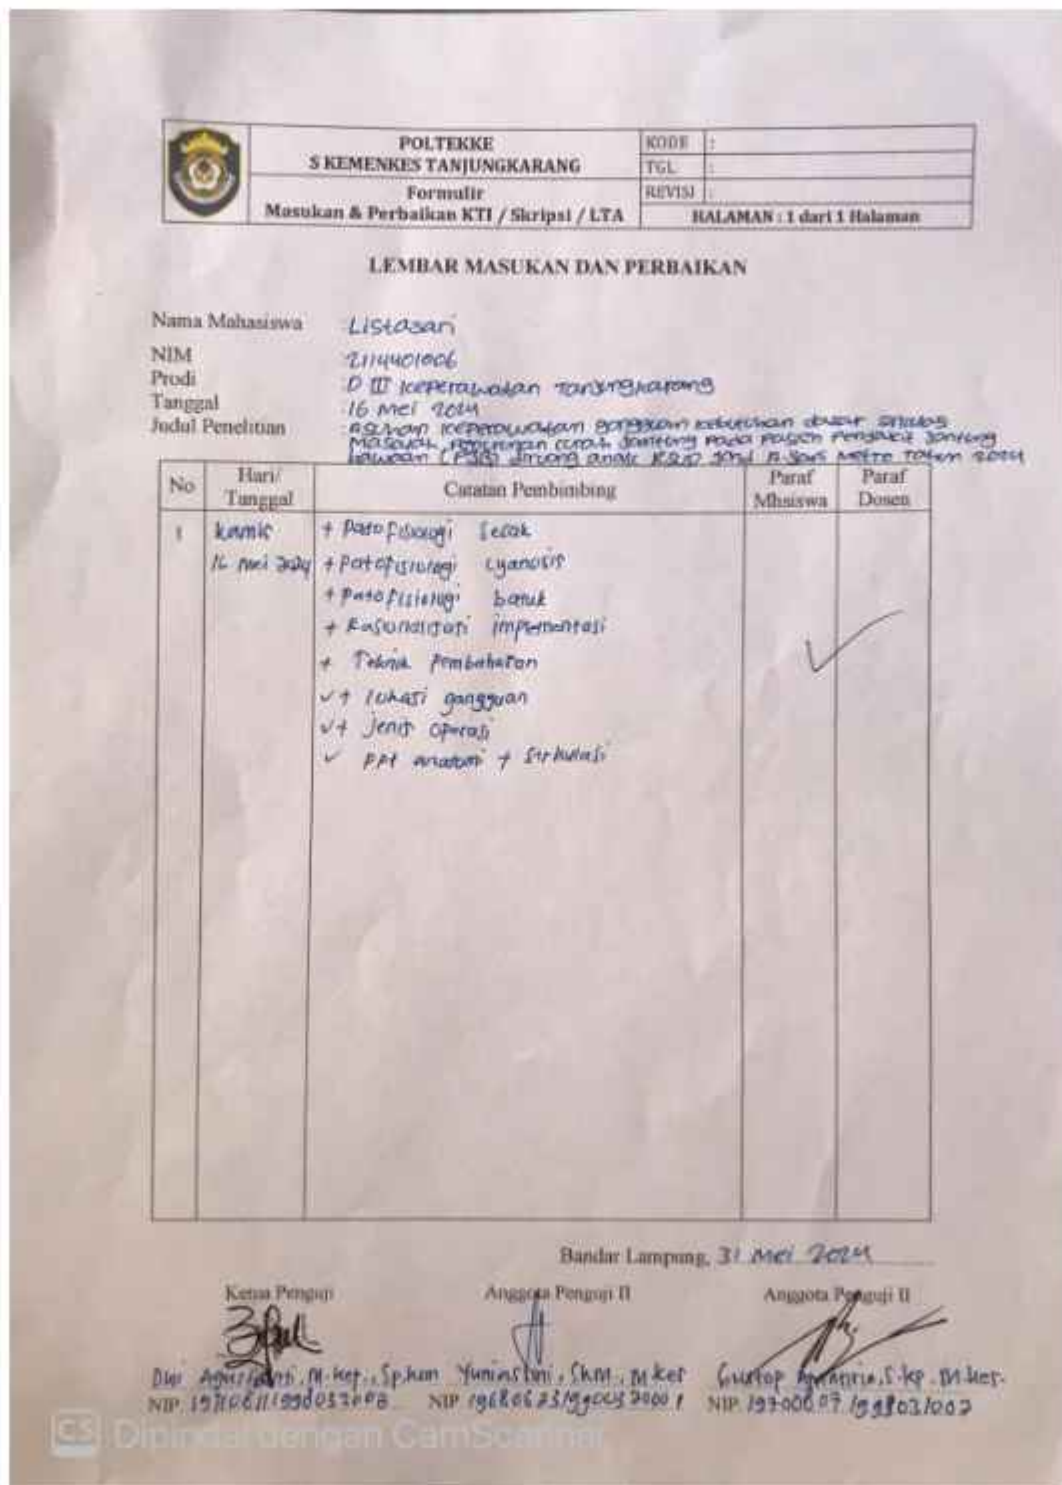 POLTEKKE
S KEMENKES TANJUNGKARANG
KODE :
TGL :
Formulir
Masukan & Perbaikan KTI / Skripsi / LTA
REVISI :
HALAMAN : 1 dari 1 Halaman
LEMBAR MASUKAN DAN PERBAIKAN
Nama Mahasiswa Listasari
NIM 2114401006
Prodi D III Keperawatan Tanjungkarang
Tanggal 16 Mei 2024
Judul Penelitian Asuhan Keperawatan gangguan kebutuhan dasar
Masalah penurunan curah jantung pada pasien penyakit jantung
bawaan (PJB) diruang anak RSUD Jend A Yani Metro Tahun 2024
No Hari/ Tanggal Catatan Pembimbing Paraf Mhsiswa Paraf Dosen
1 kamis + Patofisiologi sesak
16 Mei 2024 + Patofisiologi cyanosis
+ Patofisiologi batuk
+ Rasionalisasi implementasi
+ Teknik Pembahatan
✓ + lokasi gangguan
✓ + jenis operasi
✓ PPt anatomi + sirkulasi
Bandar Lampung, 31 Mei 2024
Ketua Penguji Anggota Penguji II Anggota Penguji II
Dwi Agustanti, M.kep., Sp.kom Yuniastini, SKM, M.kes Gustop Amatiria, S.kp. M.kes.
NIP NIP NIP
CS Dipindai dengan CamScanner